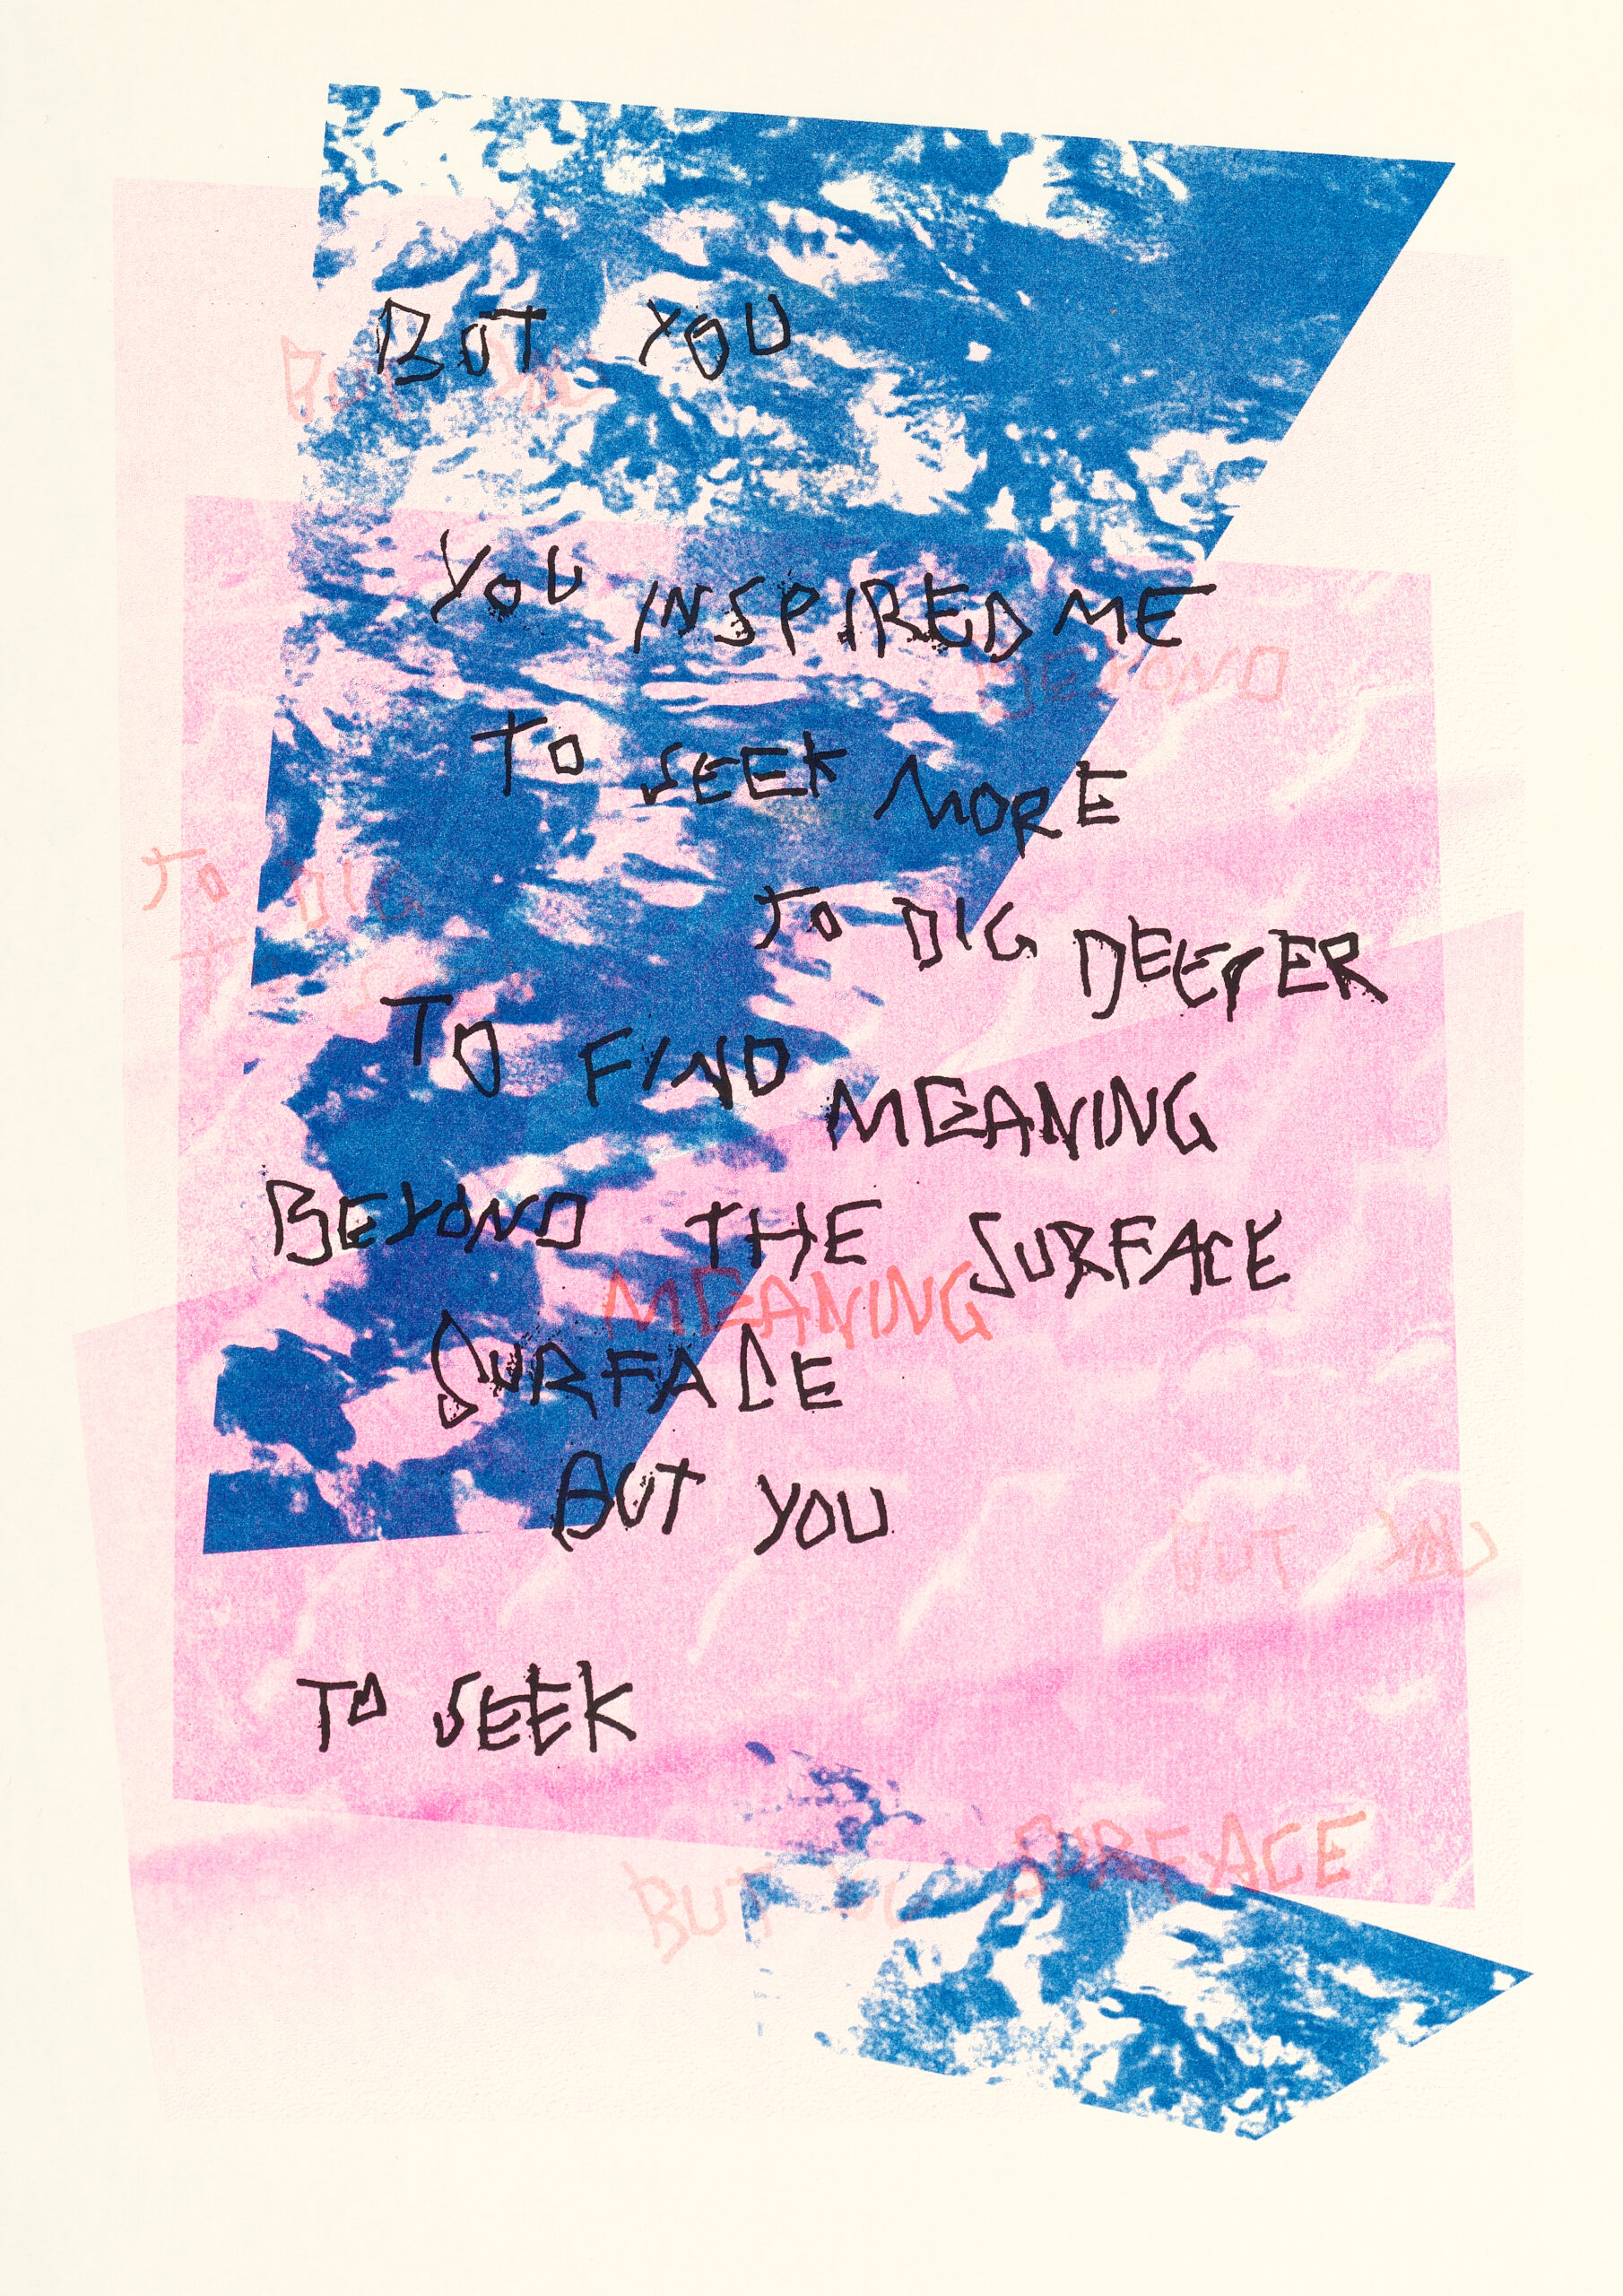 BUT YOU
BUT YOU
YOU INSPIRED ME
BEYOND
TO SEEK MORE
TO DIG
TO DIG DEEPER
TO SE
TO FIND MEANING
BEYOND THE SURFACE
MEANING
SURFACE
BUT YOU
BUT YOU
TO SEEK
SURFACE
BUT YOU